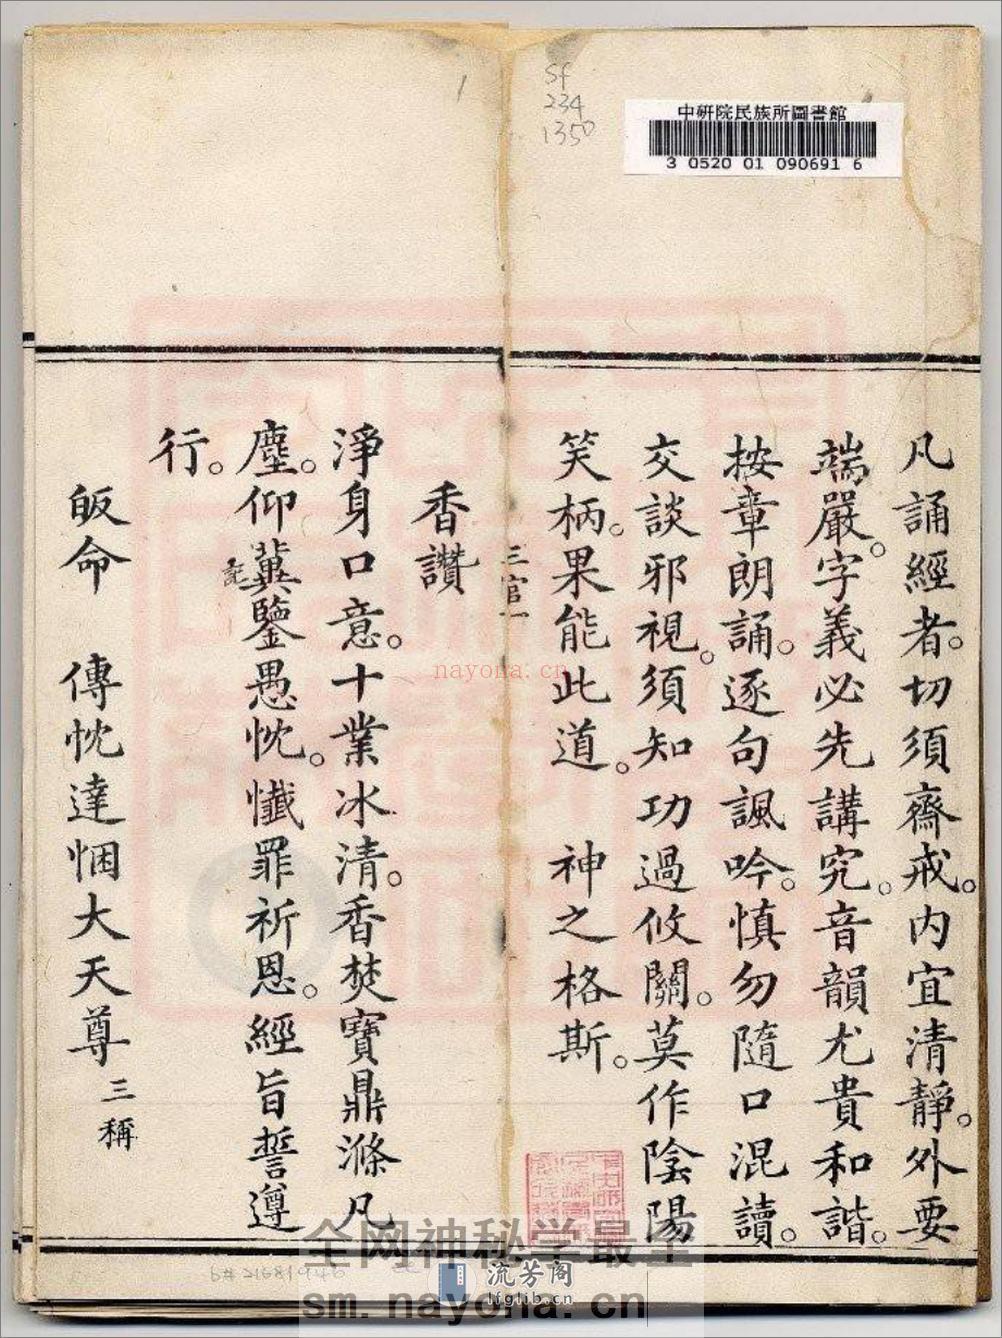 1
Sf
234
1350
中研院民族所圖書館
3 0520 01 090691 6
凡誦經者。切須齋戒。內宜清靜。外要
端嚴。字義必先講究。音韻尤貴和諧。
按章朗誦。逐句諷吟。慎勿隨口混讀。
交談邪視。須知功過攸關。莫作陰陽
笑柄。果能此道。 神之格斯。
三官 一
香讚
淨身口意。十業冰清。香焚寶鼎滌凡
塵。仰冀鑒愚忱。懺罪祈恩。經旨誓遵
行。
皈命 傳忱達悃大天尊 三稱
nayona.cn
全网神秘学最全
sm.nayona.cn
流芳阁
lfglib.cn
b# 21681946